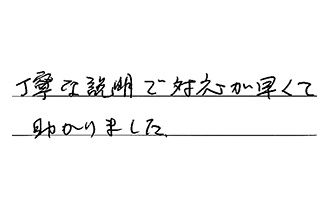 丁寧な説明で対応が早くて
助かりました。